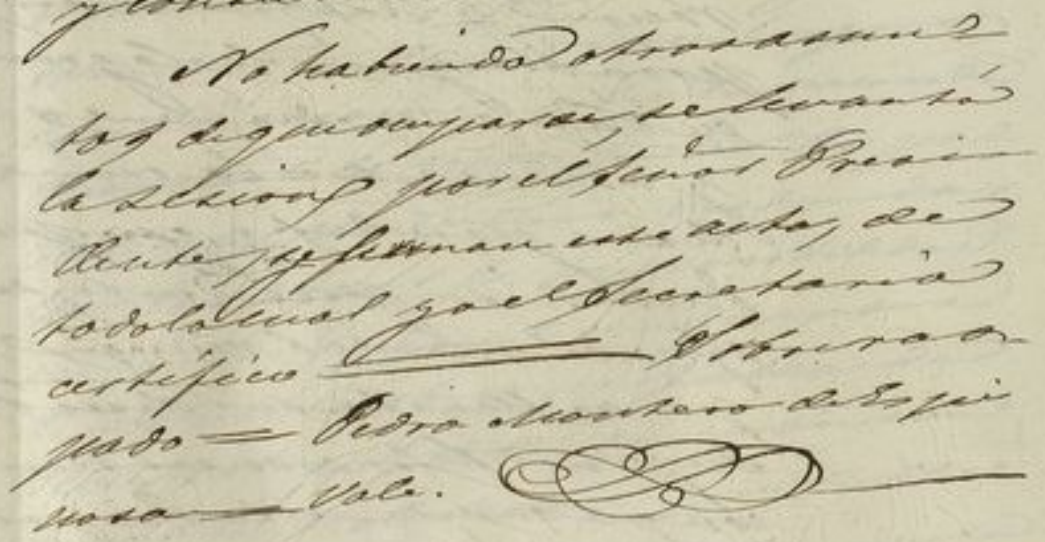 No habiendo otros asun-
tos de que ocuparse, se levantó
la sesion por el Señor Presi-
dente, y firman este acta, de
todo lo cual yo el Secretario
certifico = Sobreras-
pado = Pedro Montero de Espi
nosa = Vale.